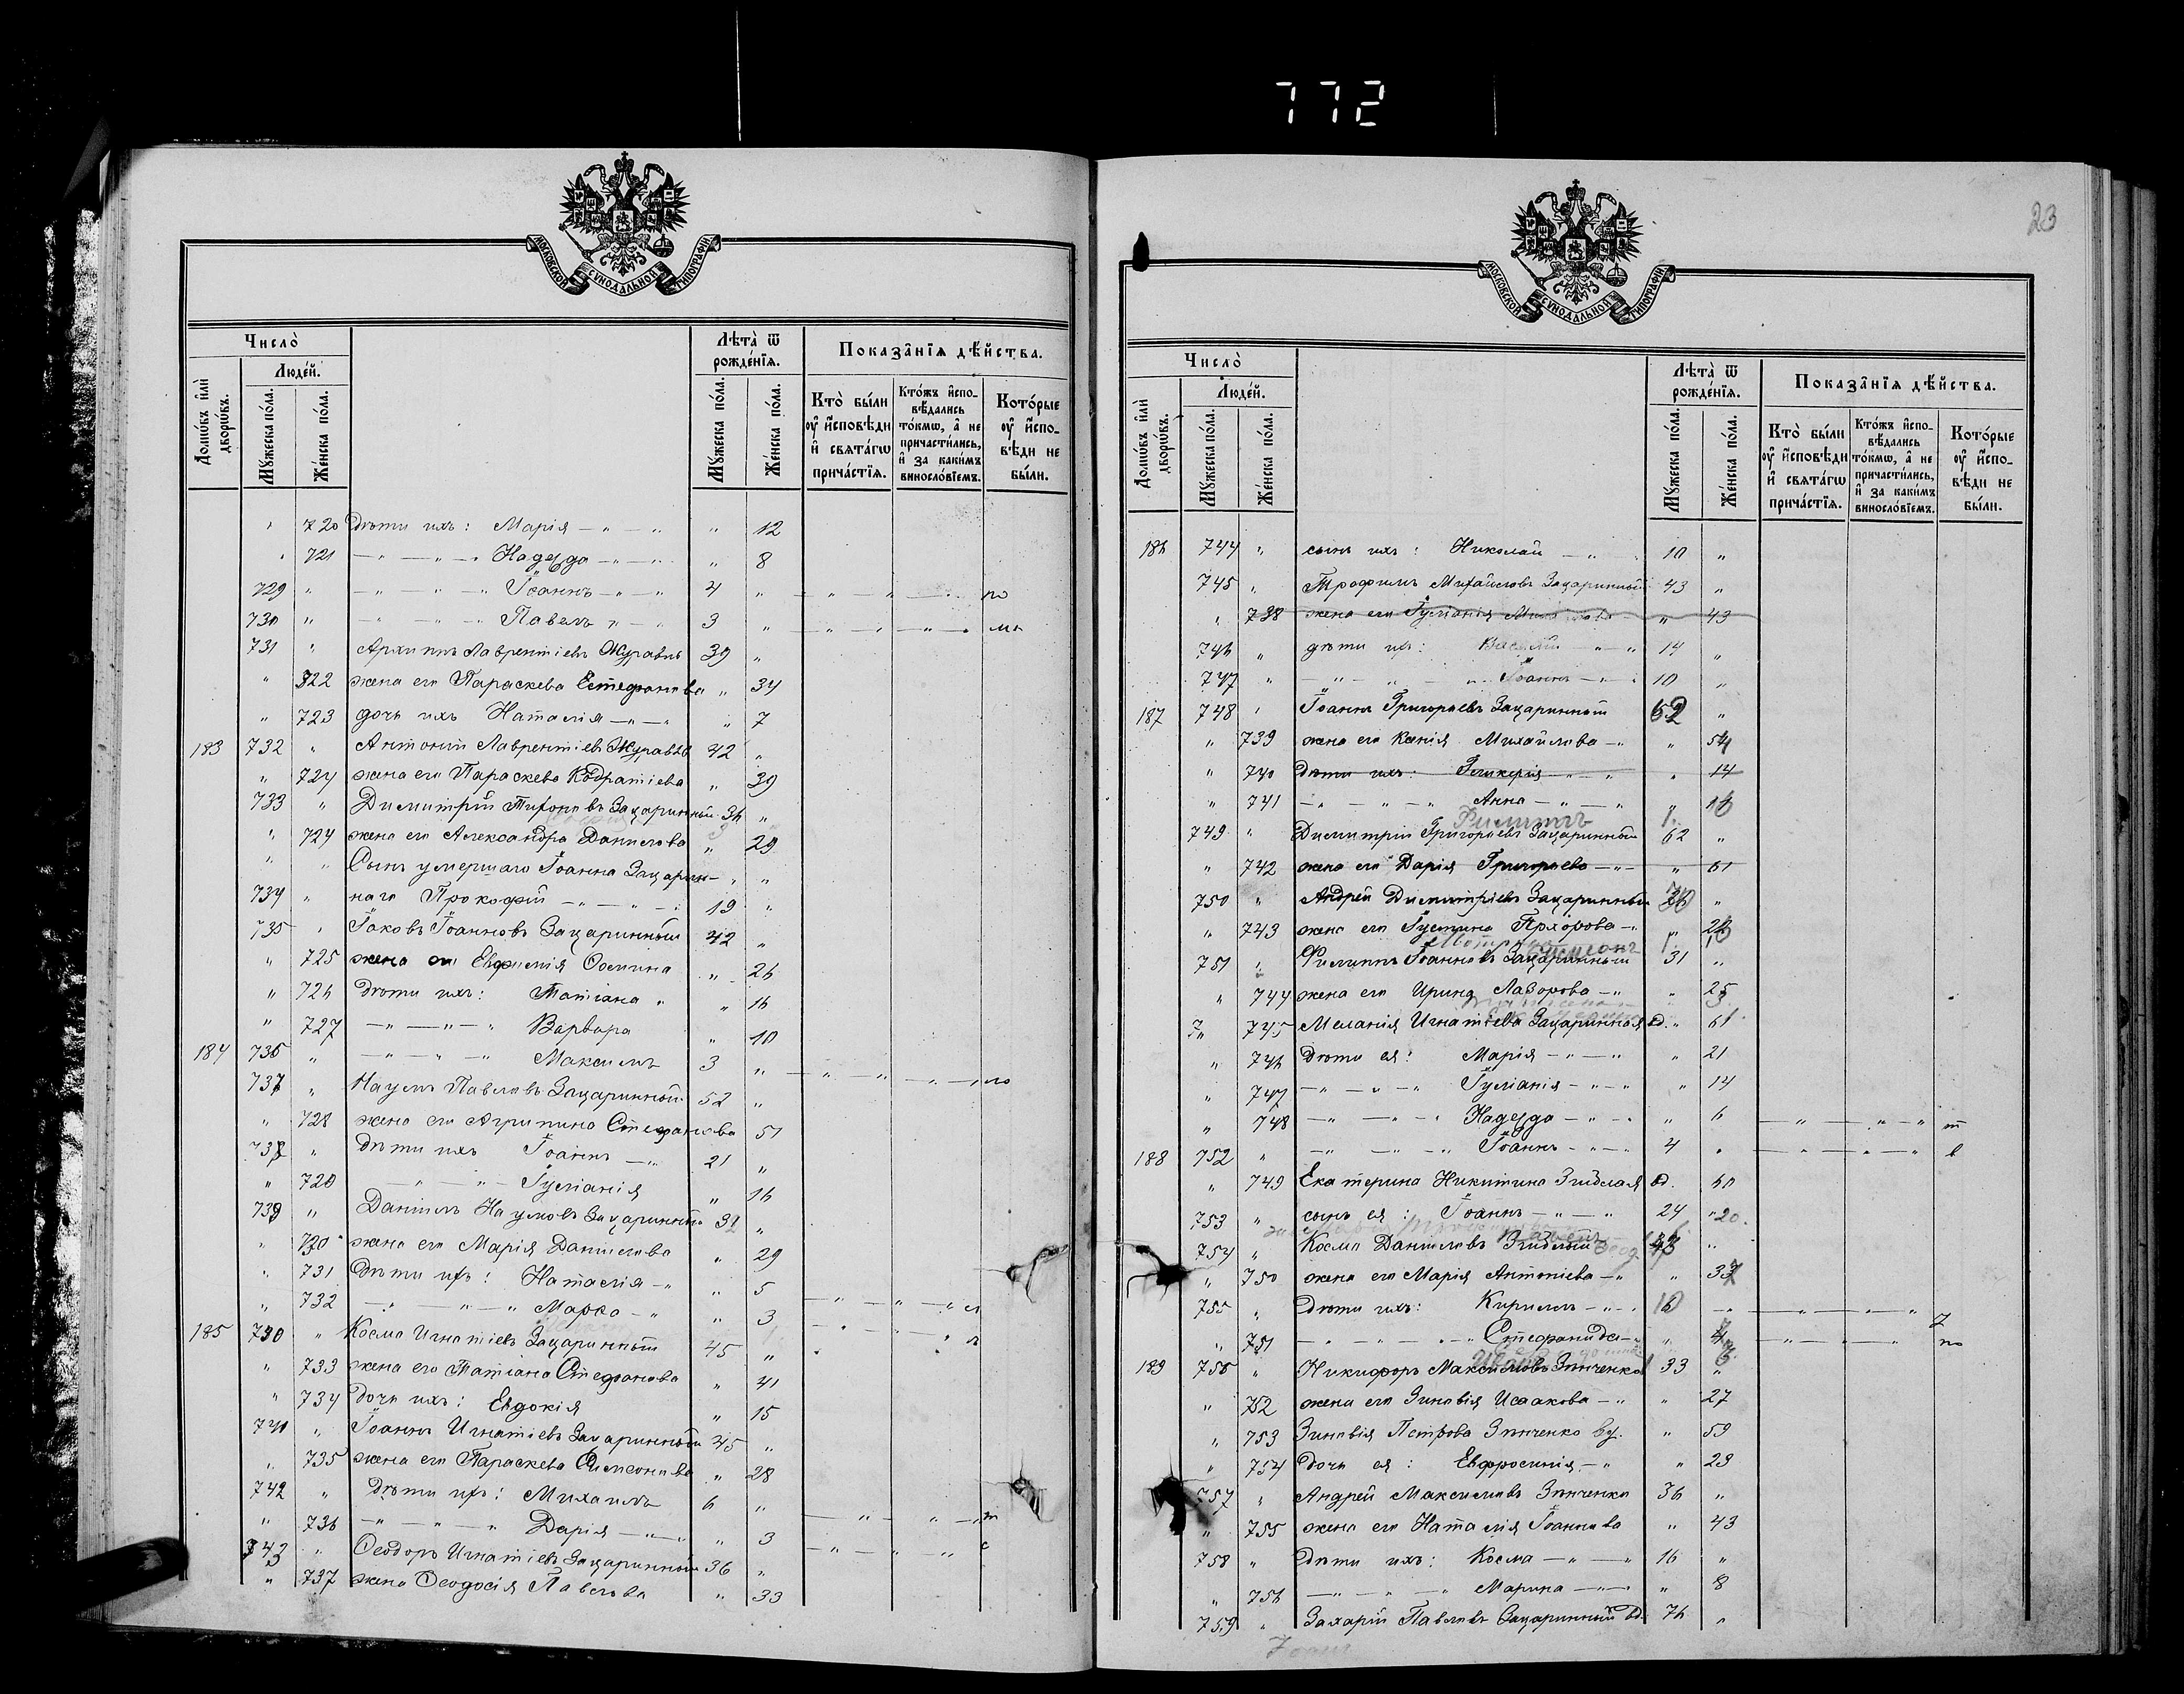 772
МОСКОВСКОЙ СУНОДАЛЬНОЙ ТИПОГРАФІИ
Число̀
Людей.
Домѡвъ и҆лѝ дворѡвъ.
Мꙋжеска по́ла.
Же́нска по́ла.
Лѣта̀ ѿ рожде́нїѧ.
Мꙋжеска по́ла.
Же́нска по́ла.
Показа̂нїѧ дѣ́йства.
Кто̀ бы́ли ᲂу҆ и҆сповѣди и҆ свѧта́гѡ прича́стїѧ.
Кто́жъ и҆споведались то́кмѡ, а҆ не причасти́лись, и҆ за каки́мъ винословїемъ.
Кото́рые ᲂу҆ и҆сповѣди не бы́ли.
" 720 Дѣти ихъ: Марія — " — " " 12
" 721 — " — " — " Надежда — " — " " 8
729 " — " — " — " Іоаннъ — " — " 4 " — " — " — " — по
730 " — " — " — " Павелъ " — " 3 " — " — " — " — "
731 " Архиппъ Лаврентіевъ Журавль 39 "
" 722 жена его Параскева Естефанова " 34
" 723 дочь ихъ Наталія — " — " " 7
183 732 " Антоній Лаврентіевъ Журавль 42 "
" 724 жена его Параскева Кодратіева " 39
733 " Димитрій Тихоновъ Зацаринный 36 "
" 724 жена его Александра Данилова " 29
" " Сынъ умершаго Іоанна Зацарин- " "
734 " наго Прокофій — " — " — " 19 "
735 " Іаковъ Іоанновъ Зацаринный 42 "
" 725 жена его Евфимія Осипина " 26
" 726 Дѣти ихъ: Татіана " " 16
" 727 — " — " — " Варвара " 10
184 736 " — " — " — " Максимъ 3 " — " — " — " — " по
737 " Наумъ Павловъ Зацаринный 52 "
" 728 жена его Агрипина Стефанова 51
738 " Дѣти ихъ Іоаннъ — " 21 "
" 729 — " — " — Іуліанія " 16
739 " Даніилъ Наумовъ Зацаринный 32 "
" 730 жена его Марія Данилова " 29
" 731 Дѣти ихъ: Наталія — " " 5
" 732 — " — " — " Марѳа — " " 3
185 740 " Косма Игнатіевъ Зацаринный 45 "
" 733 жена его Татіана Стефанова " 41
" 734 дочь ихъ: Евдокія " 15
741 " Іоаннъ Игнатіевъ Зацаринный 45 "
" 735 жена его Параскева Симеонова " 28
742 " Дѣти ихъ: Михаилъ 6 "
" 736 — " — " — " Дарія — " — " " 3
743 " Ѳеодоръ Игнатіевъ Зацаринный 36 "
" 737 жена Ѳеодосія Павлова " 33
23
МОСКОВСКОЙ СУНОДАЛЬНОЙ ТИПОГРАФІИ
Число̀
Людей.
Домѡвъ и҆лѝ дворѡвъ.
Мꙋжеска по́ла.
Же́нска по́ла.
Лѣта̀ ѿ рожде́нїѧ.
Мꙋжеска по́ла.
Же́нска по́ла.
Показа̂нїѧ дѣ́йства.
Кто̀ бы́ли ᲂу҆ и҆сповѣди и҆ свѧта́гѡ прича́стїѧ.
Кто́жъ и҆споведались то́кмѡ, а҆ не причасти́лись, и҆ за каки́мъ винословїемъ.
Кото́рые ᲂу҆ и҆сповѣди не бы́ли.
186 744 " сынъ ихъ: Николай — " 10 "
745 " Трофимъ Михайловъ Зацаринный 43 "
" 738 жена его Іуліанія " 43
746 " дѣти ихъ: Василій — " — " 14 "
747 " — " — " — " Іоаннъ — " — " 10 "
187 748 " Іоаннъ Григорьевъ Зацаринный 62 "
" 739 жена его Ксенія Михайлова — " " 54
" 740 Дѣти ихъ: Гликерія — " — " " 14
" 741 — " — " — " Анна — " — " "
Филиппъ
749 " Димитрій Григорьевъ Зацаринный 62 "
" 742 жена его Дарія Григорьева — " — " 61
750 " Андрей Димитріевъ Зацаринный "
" 743 жена его Іустина Прохорова — " "
751 " Филиппъ Іоанновъ Зацаринный 31 "
" 744 жена его Ирина Лаврова — " " 25
745 Меланія Игнатіева Зацаринная вд. " 61
" 746 Дѣти ея: Марія — " — " " 21
" 747 — " — " — " Іуліанія — " — " " 14
" 748 — " — " — " Надежда — " — " " 6
188 752 " — " — " — " Іоаннъ — " — " 4 "
" 749 Екатерина Никитина Згидлая вд. 60
753 " сынъ ея: Іоаннъ — " — " 24 " 20
754 " Косма Даниловъ "
" 750 жена его Марія Антоніева — " " 37
755 " Дѣти ихъ: Кириллъ — " — "
" 751 — " — " — " Стефанида — " "
189 756 " Никифоръ Максимовъ Зинченко 33 "
" 752 жена его Зиновія Исаакова — " " 27
" 753 Зиновія Петрова Зинченко вд. " 59
" 754 Дочь ея: Евфросинія — " " 29
757 " Андрей Максимовъ Зинченко 36 "
" 755 жена его Наталія Іоаннова " 43
758 " Дѣти ихъ: Косма — " — " 16 "
" 756 — " — " — " Марина — " — " " 8
759 " Захарій Павловъ Зацаринный вд. 76 "